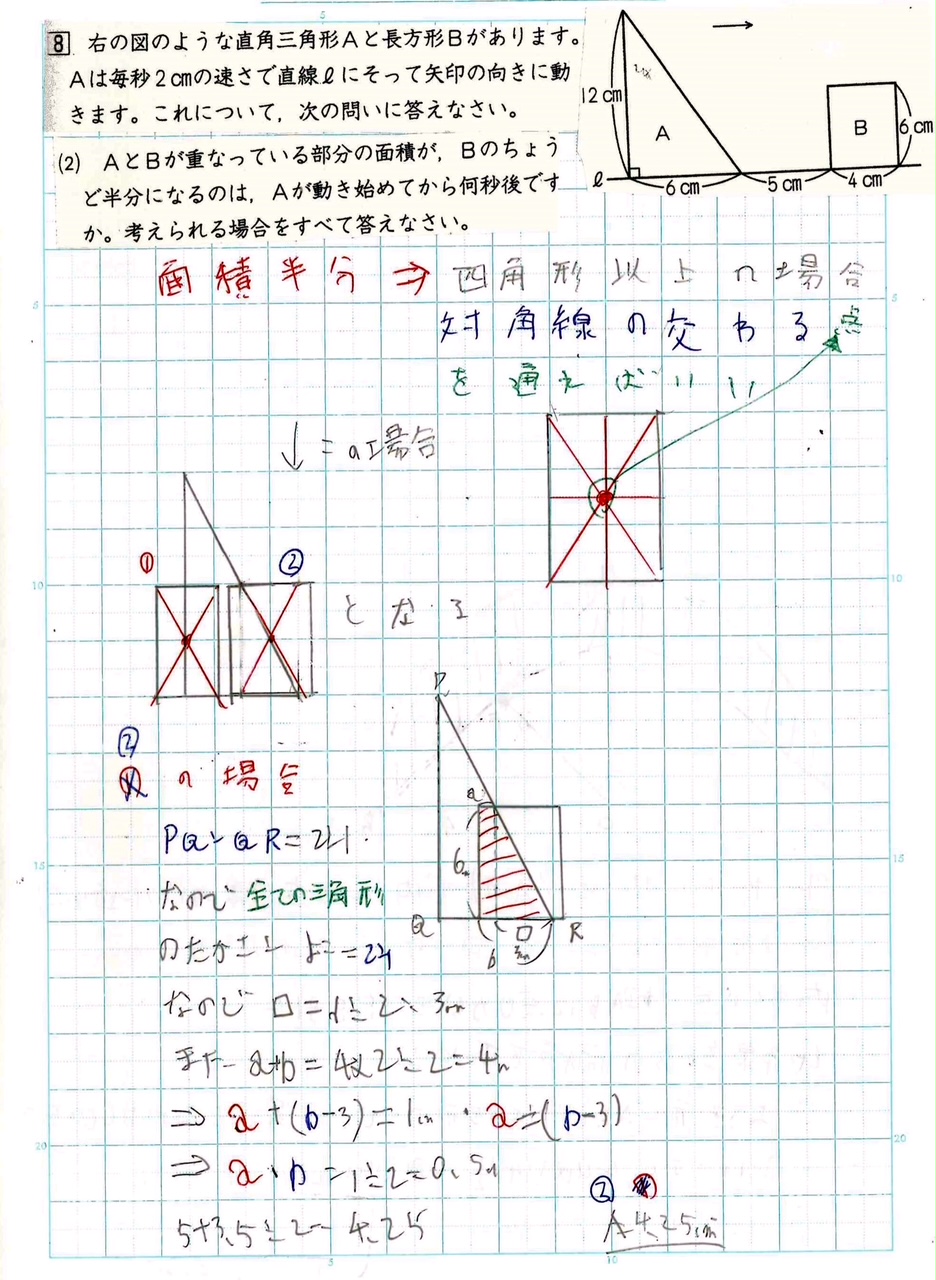 8 右の図のような直角三角形Aと長方形Bがあります。
Aは毎秒2cmの速さで直線ℓにそって矢印の向きに動
きます。これについて,次の問いに答えなさい。
(2) AとBが重なっている部分の面積が,Bのちょう
ど半分になるのは,Aが動き始めてから何秒後です
か。考えられる場合をすべて答えなさい。
12cm
A
B
6cm
ℓ
6cm
5cm
4cm
面積半分⇒四角形以上の場合
対角線の交わる点
を通ればいい
この場合
①
②
となる
② の場合
PQ:QR=2:1
なので全ての三角形
のたかさとよこ=2:1
なので□=6÷2=3cm
また a+b=4×2÷2=4cm
⇒a+(b-3)=1cm・a=(b-3)
⇒
=1÷2=0.5cm
5+3.5÷2=4.25
P
a
6cm
Q
b
□
3cm
R
②
A 4.25cm